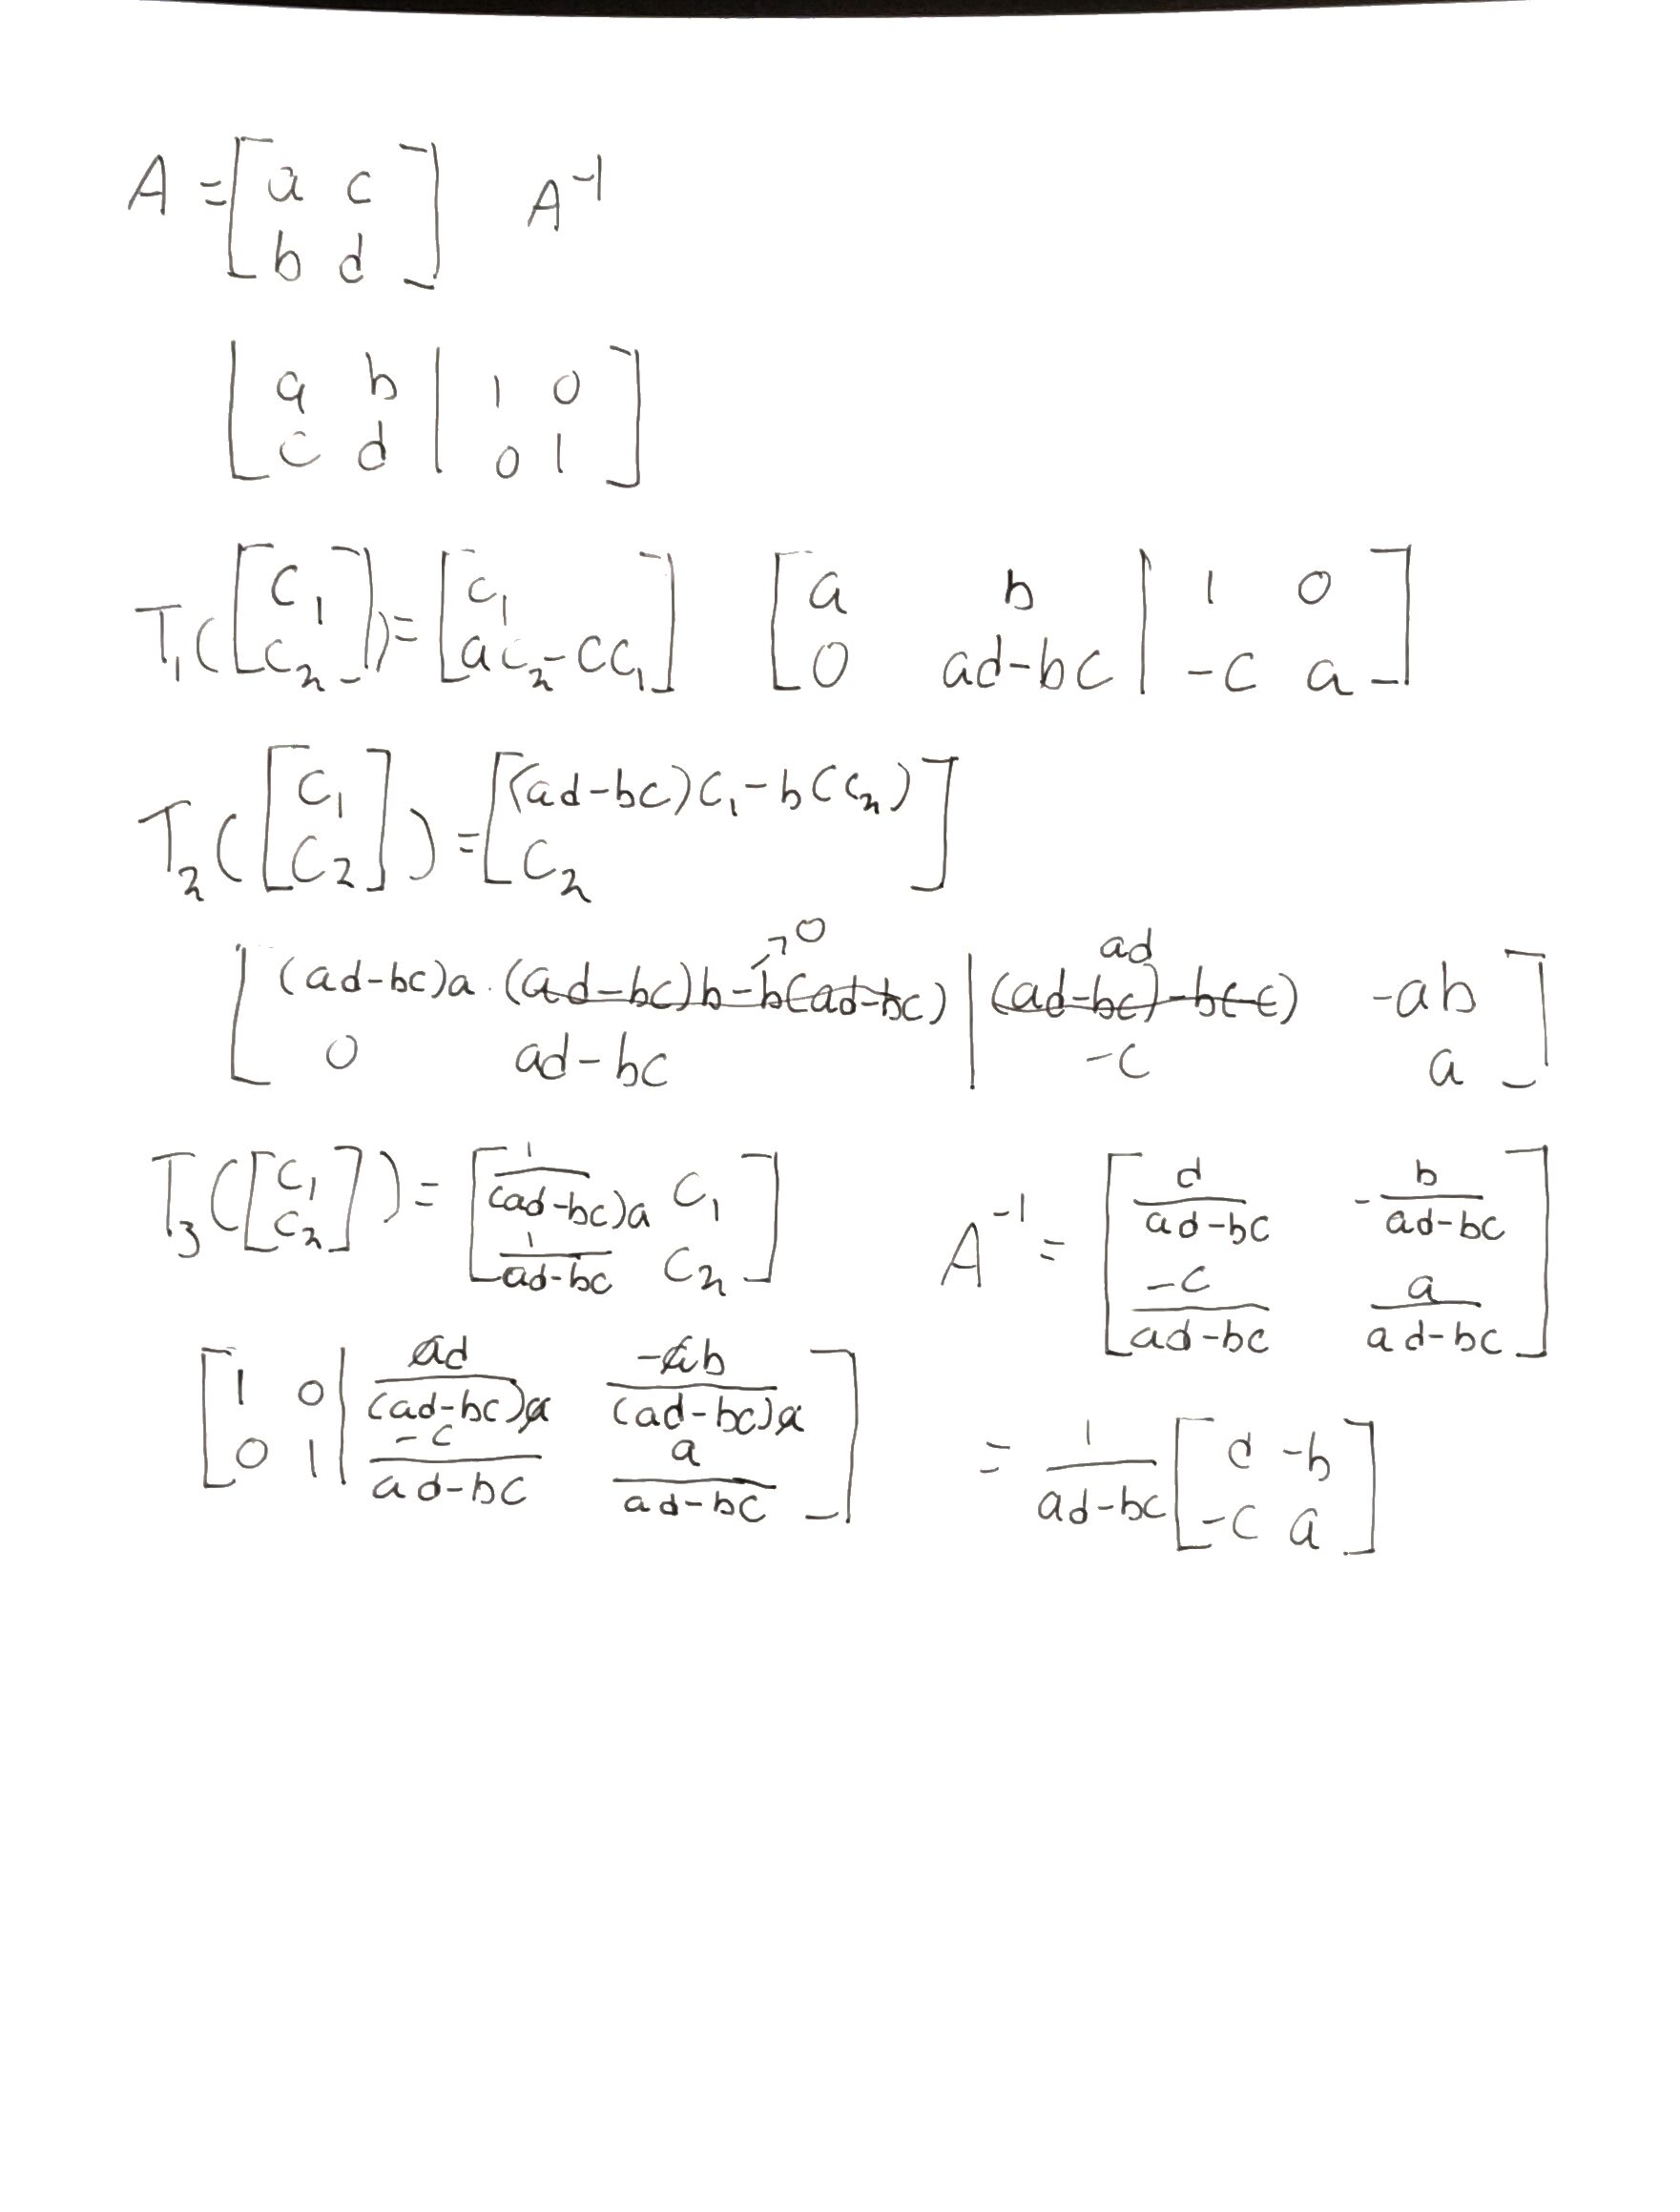 A = [ a c   A⁻¹
b d ]
[ a b | 1 0
c d | 0 1 ]
T₁([ c₁ c₂ ]) = [ c₁   [ a b | 1 0
ac₂ - cc₁ ]   0 ad-bc | -c a ]
T₂([ c₁ c₂ ]) = [ (ad-bc)c₁ - b(c₂)
c₂ ]
→0 ad
[ (ad-bc)a (ad-bc)b - b(ad-bc) | (ad-bc) - b(-c) -ab
0 ad-bc | -c a ]
T₃([ c₁ c₂ ]) = [ 1/(ad-bc)a c₁   A⁻¹ = [ d/ad-bc -b/ad-bc
1/ad-bc c₂ ]   -c/ad-bc a/ad-bc ]
[ 1 0 | ad/(ad-bc)a -ab/(ad-bc)a
0 1 | -c/ad-bc a/ad-bc ]
= 1/ad-bc [ d -b
-c a ]